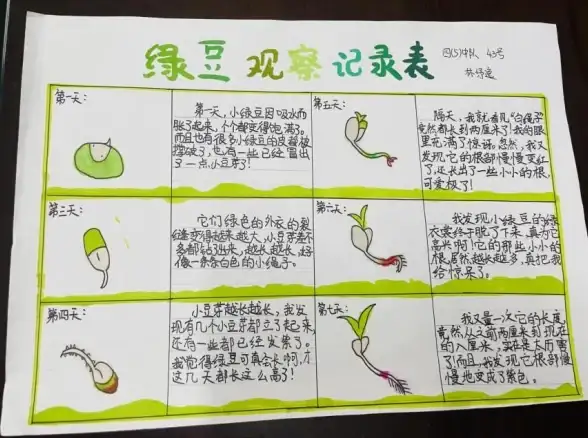 绿豆观察记录表
四(5)中队 43号
林
第一天:
第一天,小绿豆因吸水而
胀了起来,个个都变得饱满了。
而且也有很多小绿豆的皮都被
撑破了,也有一些已经冒出
了一点小豆芽了!
第三天:
它们绿色的外衣的裂
缝变得越来越大,小豆芽差不
多都钻出来,越长越长,好
像一条条白色的小绳子。
第四天:
小豆芽越长越长,我发
现有几个小豆芽都立了起来,
还有一些都已经发紫了。
我觉得绿豆可真会长啊,才
这几天都长这么高了!
第五天:
隔天,我就看见“白绳子”
竟然都长到两厘米了!我的眼
里充满了惊讶。忽然,我又
发现它的根部慢慢变红
了,还长出了一些小小的根,
可爱极了!
第六天:
我发现小绿豆的绿
衣裳终于脱了下来,真为它
高兴啊!它的那些小小的
根居然越长越多,真把我
给惊呆了。
第七天:
我又量一次它的长度,
竟然从之前两厘米到现在
的八厘米,实在是太厉害
了!而且,我发现它根部慢
慢地变成了紫色。